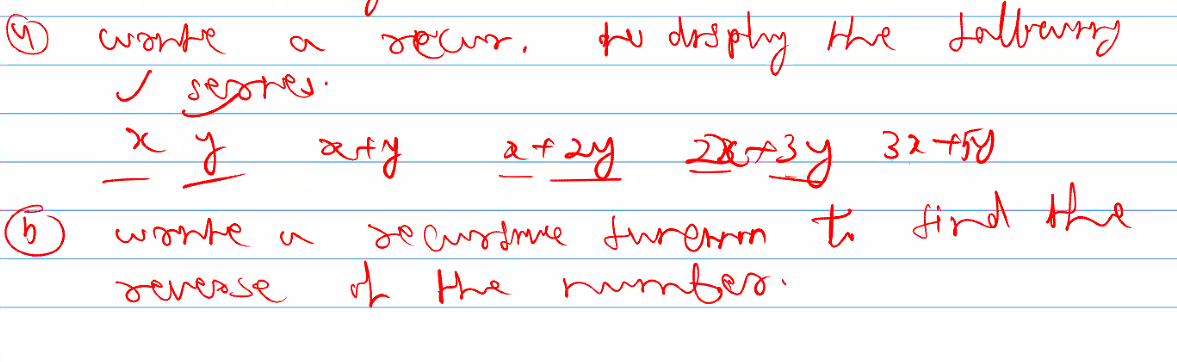 4 write a recur. fu display the following
series.
x y x+y x+2y 2x+3y 3x+5y
5 write a recursive function to find the
reverse of the number.